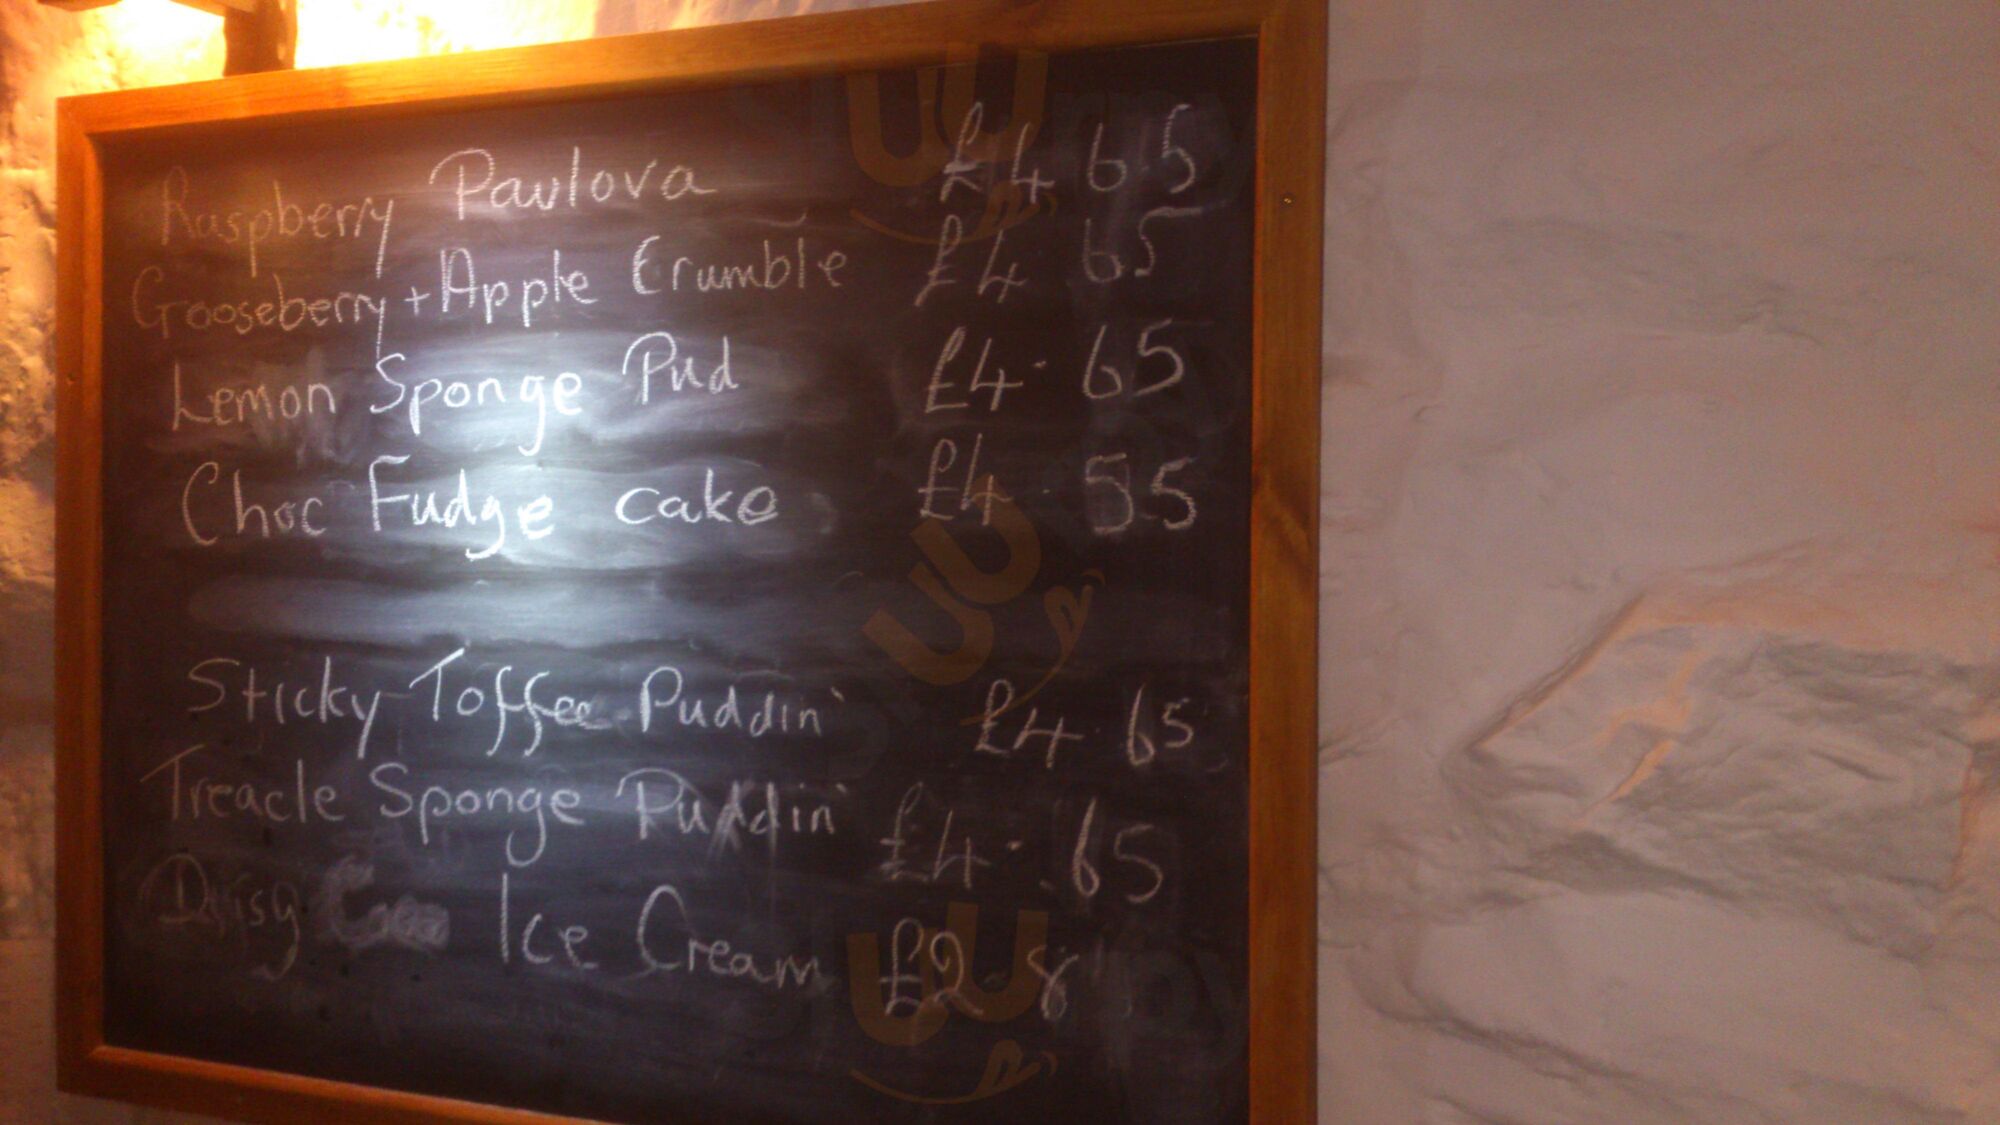 Raspberry Pavlova £4 65
Gooseberry + Apple Crumble £4 65
Lemon Sponge Pud £4.65
Choc Fudge cake £4.55
Sticky Toffee Puddin' £4.65
Treacle Sponge Puddin' £4.65
Daisy Ice Cream £2.8